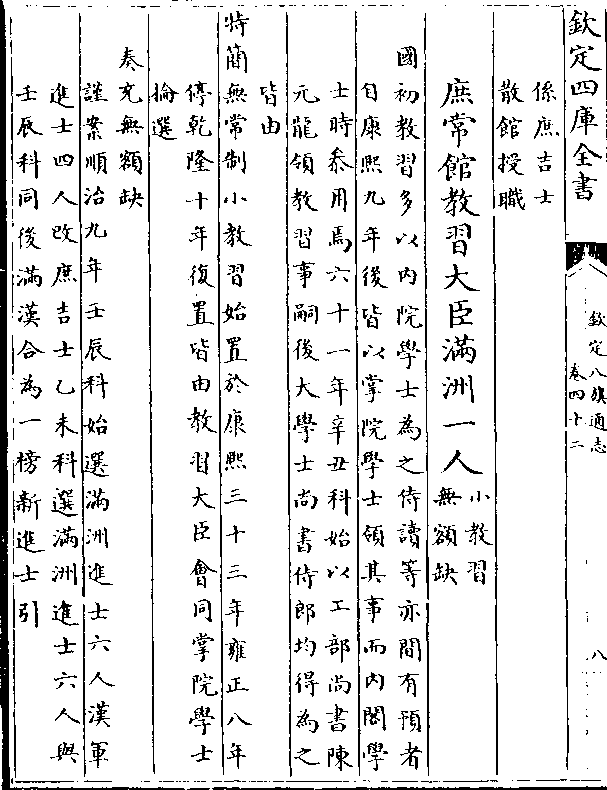 欽定四庫全書
欽定八旗通志
卷四十二
八
係庶吉士
散館授職
庶常館教習大臣滿洲一人
小教習
無額缺
國初教習多以內院學士為之侍讀等亦間有預者
自康熙九年後皆以掌院學士領其事而內閣學
士時叅用焉六十一年辛丑科始以工部尚書陳
元龍領教習事嗣後大學士尚書侍郎均得為之
皆由
特簡無常制小教習始置於康熙三十三年雍正八年
停乾隆十年復置皆由教習大臣會同掌院學士
掄選
奏充無額缺
謹案順治九年壬辰科始選滿洲進士六人漢軍
進士四人改庶吉士乙未科選滿洲進士六人與
壬辰科同後滿漢合為一榜新進士引